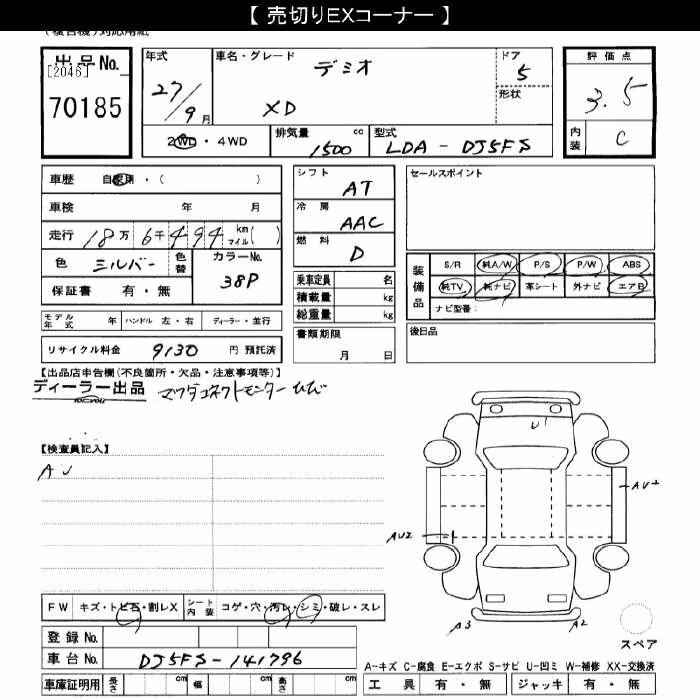 【 売切りEXコーナー 】
出品No.
[2046]
70185
年式
27/9月
車名・グレード
デミオ
XD
ドア
5
形状
評価点
3.5
2WD・4WD
排気量
1500
cc
型式
LDA - DJ5FS
内装
C
車歴 自家用・( )
車検 年 月
走行 18万 6千 494 km マイル( )
色 シルバー
色替
カラーNo.
38P
保証書 有・無
シフト
AT
冷房
AAC
燃料
D
セールスポイント
装備品
S/R 純A/W P/S P/W ABS
純TV 純ナビ 革シート 外ナビ エアB
ナビ型番:
乗車定員 名
積載量 kg
総重量 kg
モデル年式 年 ハンドル 左・右 ディーラー・並行
書類期限
月 日
後日品
リサイクル料金 9130 円 預託済
【出品店申告欄(不良箇所・欠品・注意事項等)】
ディーラー出品 マツダコネクトモニターヒビ
【検査員記入】
AU
U1
AU+
AU2
A3
A2
スペア
FW キズ・トビ石・割レX
シート内装 コゲ・穴・汚レ・シミ・破レ・スレ
登録No.
車台No. DJ5FS-141796
A-キズ C-腐食 E-エクボ S-サビ U-凹ミ W-補修 XX-交換済
車庫証明用 長さ cm 幅 cm 高さ cm
工具 有・無 ジャッキ 有・無